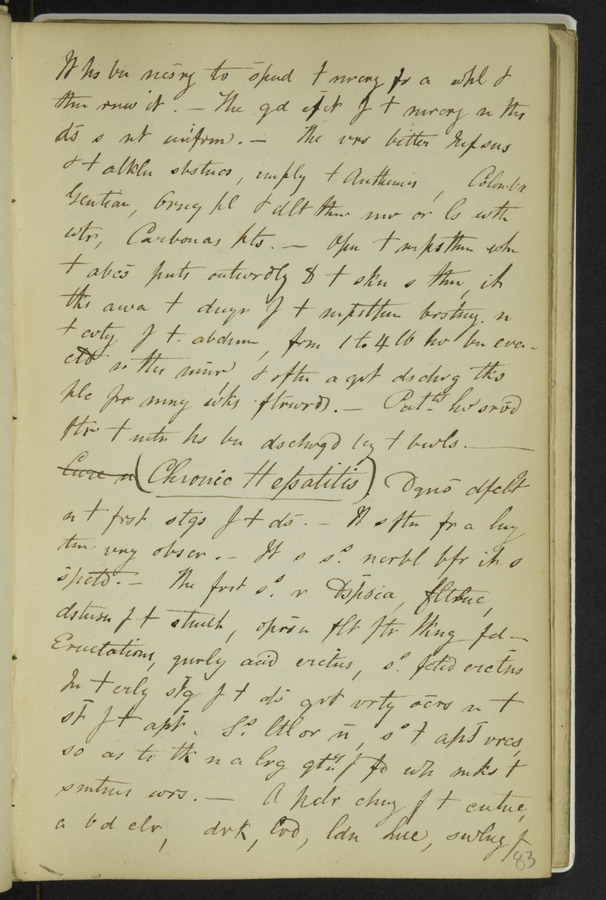 It hs bn ncsry to spnd t mrcry fr a whl &
thn rnw it. — The gd efct f t mrcry n ths
ds s nt unifrm. — The vrs bitter Infsns
& t alkln sbstncs, imply t Anthemis, Colomba
Gentian,
wtr, Carbonas Pts. — Opn t whn
t abcs pnts outwrdly & t skn s thn, it
ths awa t dngr f t brstng n
t cvty f t abdmn, frm 1 to 4 lb hv bn eva-
ctd n ths mnr & oftn a grt dschrg tks
plc fr mny wks ftrwrds. — Pnts hv srvd
ftr t mtr hs bn dschrgd by t bwls. —
Cure n (Chronic Hepatitis). Dgns dfclt
n t frst stgs f t ds. — It s oftn fr a lng
tm vry obscr. — It s s.
spctd. — The frst s. r Dspsia, fltlnc,
dstnsn f t stmch, oprsn flt ftr tkng fd —
Eructations, prly acid erctns, s. fetid erctns
In t erly stg f t ds grt vrty ocrs n t
st f t apt. S. ltl or n, s. t apt vrcs,
so as to tk n a lrg qty f fd wh mks t
smtms wrs. — A pclr chng f t cntnc,
a bd clr, drk, lvd, ldn hue, swlng f
83